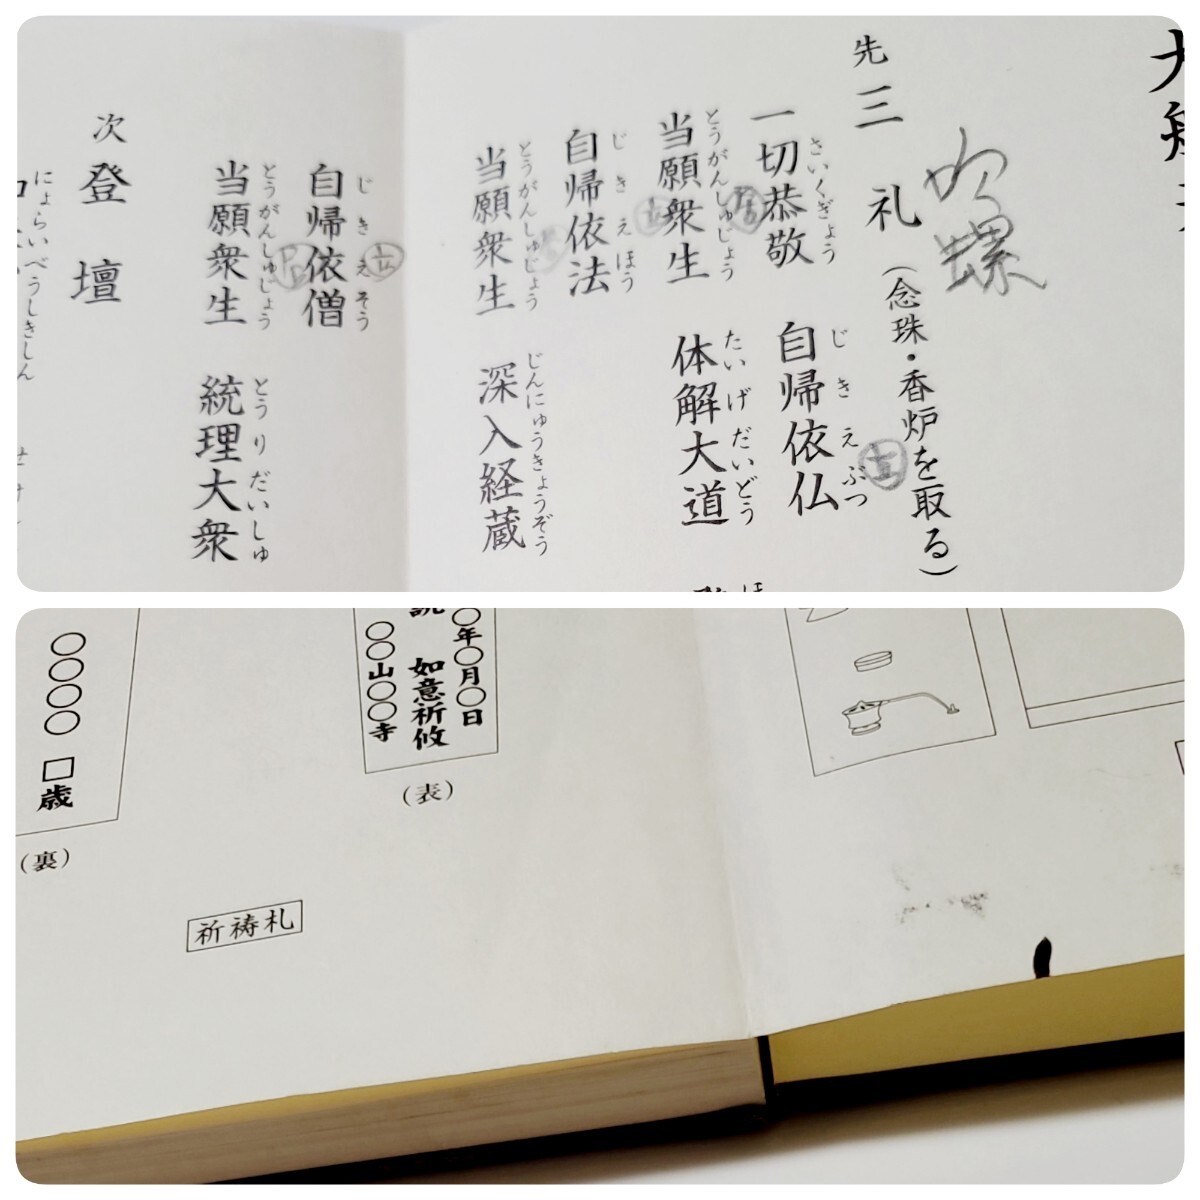 大般若
先 三 礼 (念珠・香炉を取る)
一切恭敬 自帰依仏
さいくぎょう じきえぶつ
当願衆生 体解大道
とうがんしゅじょう たいげだいどう
自帰依法
じきえほう
当願衆生 深入経蔵
とうがんしゅじょう じんにゅうきょうぞう
自帰依僧
じきえそう
当願衆生 統理大衆
とうがんしゅじょう とうりだいしゅ
次 登 壇
にょらいべうしきしん
〇年〇月〇日
如意祈攸
〇〇山〇〇寺
(表)
〇〇〇〇 □歳
(裏)
祈祷札